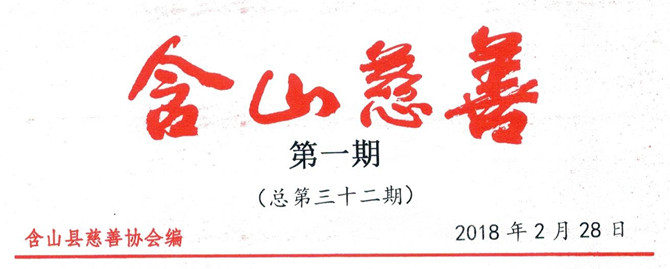 含山慈善
第一期
（总第三十二期）
含山县慈善协会编 2018年2月28日